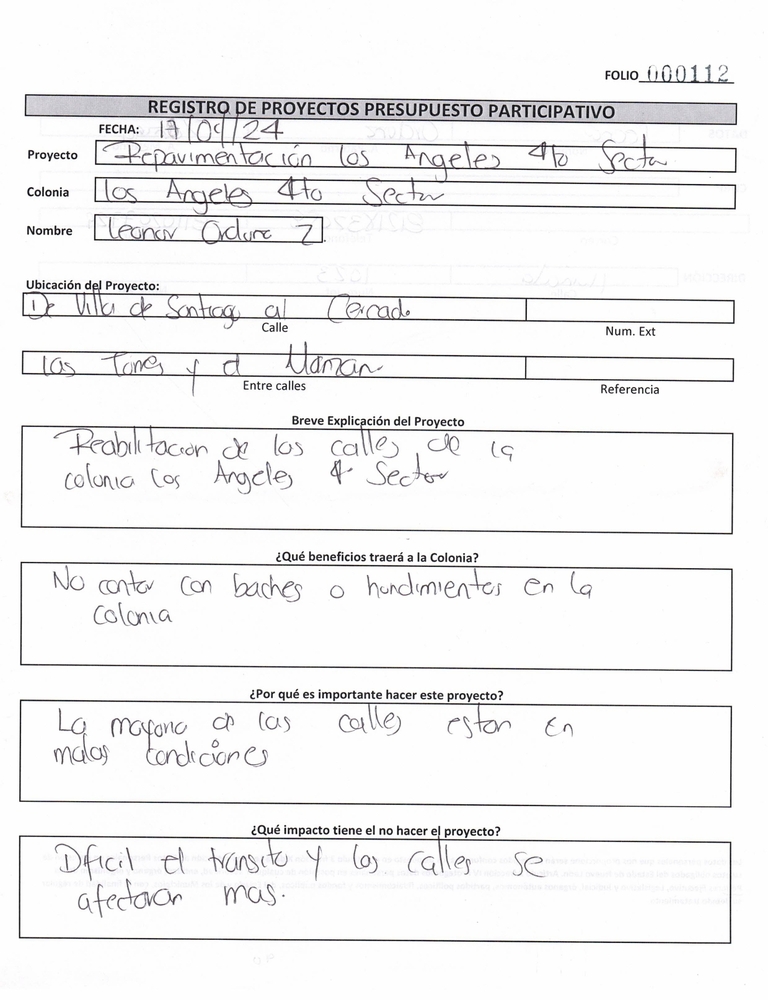 FOLIO 000112
REGISTRO DE PROYECTOS PRESUPUESTO PARTICIPATIVO
FECHA: 17/09/24
Proyecto Repavimentación los Angeles 4to Sector
Colonia los Angeles 4to Sector
Nombre Leonor Z
Ubicación del Proyecto:
De Villa de Santiago al Cercado
Calle
Num. Ext
las Torres y el
Entre calles
Referencia
Breve Explicación del Proyecto
Reabilitacion de las calles de la
colonia los Angeles 4 Sector
¿Qué beneficios traerá a la Colonia?
No contar con baches o hundimientos en la
colonia
¿Por qué es importante hacer este proyecto?
La mayoria de las calles estan en
malas condiciones
¿Qué impacto tiene el no hacer el proyecto?
Dificil el transito y las calles se
afectaran mas.